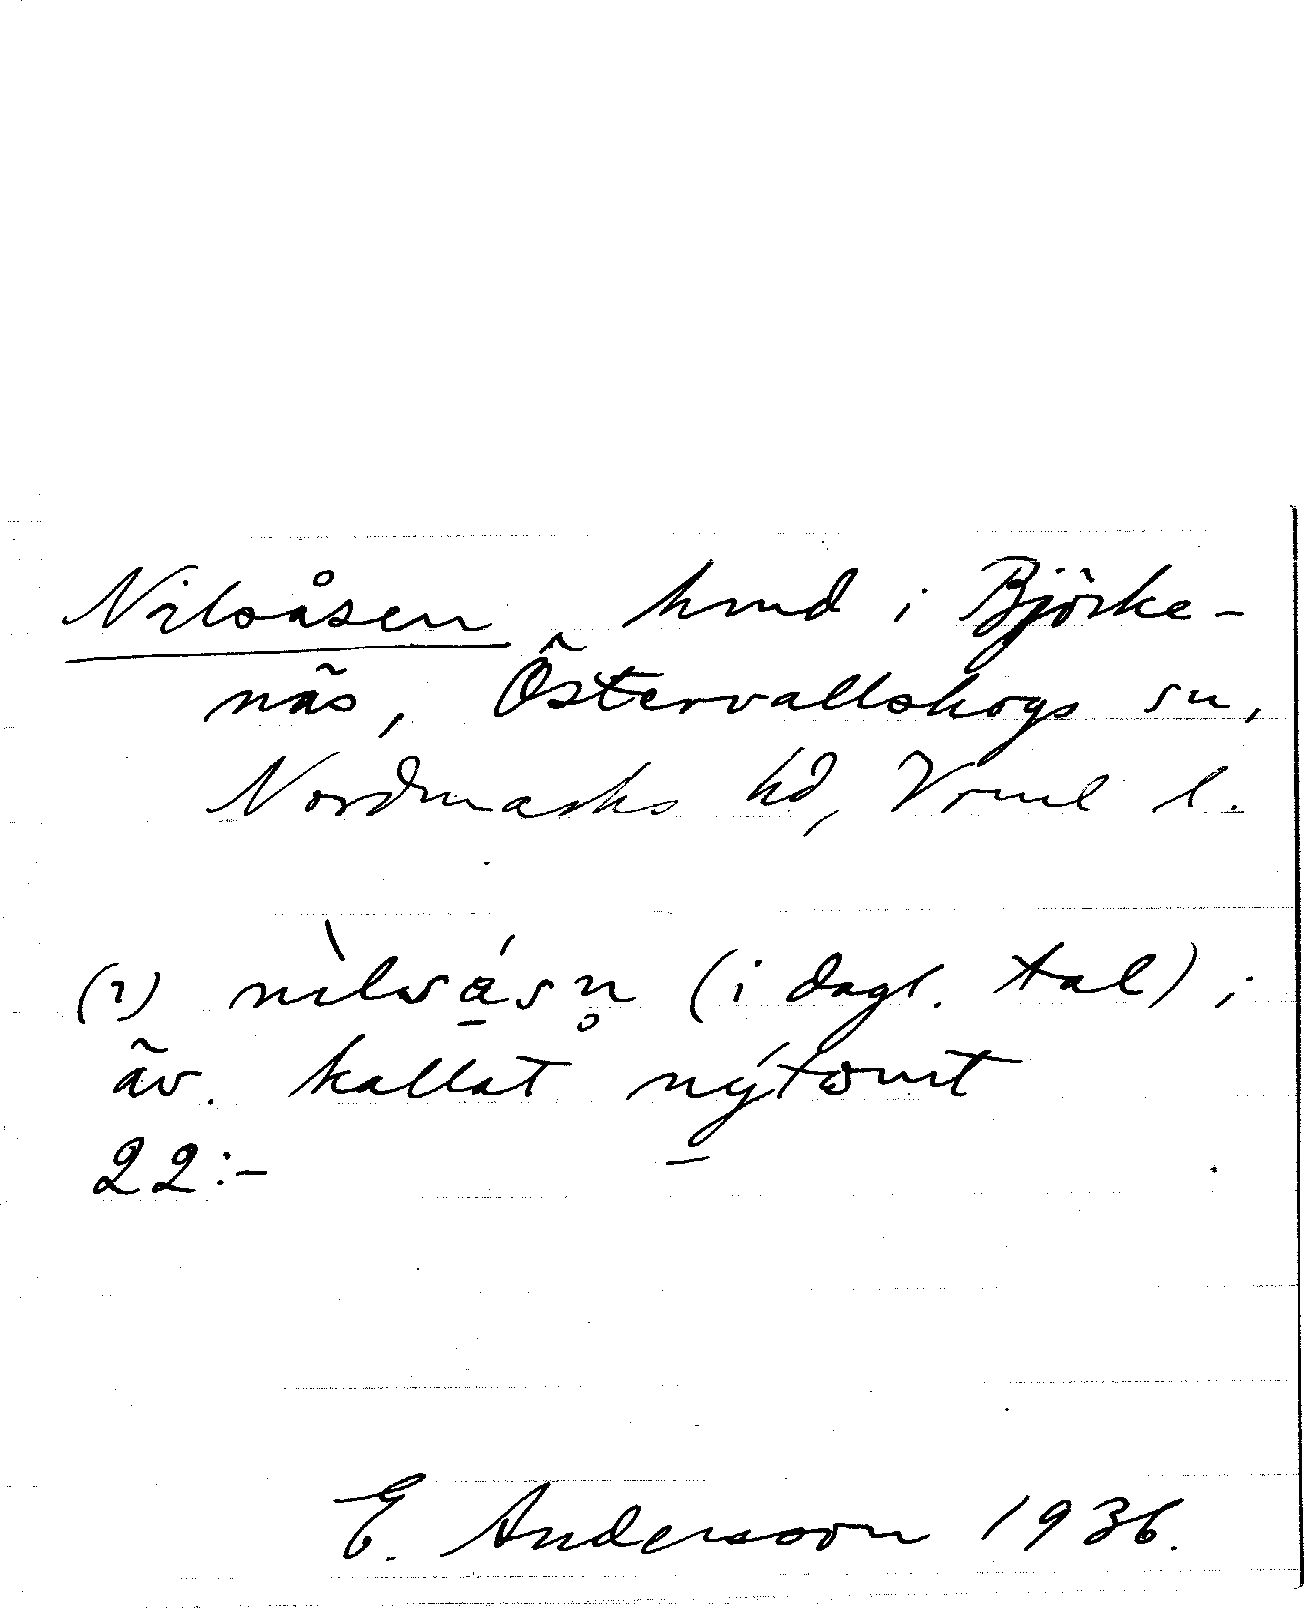 Nilsåsen hmd i Björke-
näs, Östervallskogs sn,
Nordmarks hd, Vrml l.
(1) nìlsásn̥ (i dagl. tal);
äv. kallat nýtomt
22:-
E. Andersson 1936.